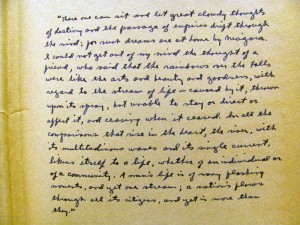 "There one can sit and let great cloudy thoughts
of destiny and the passage of empires drift through
the mind; for such dreams are at home by Niagara.
I could not get out of my mind the thought of a
friend, who said that the rainbows over the Falls
were like the arts and beauty and goodness, with
regard to the stream of life — caused by it, thrown
upon its spray, but unable to stay or direct or
affect it, and ceasing when it ceased. In all the
comparisons that rise in the heart, the river, with
its multitudinous waves and its single current,
likens itself to a life, whether of an individual or
of a community. A man's life is of many flashing
moments, and yet one stream; a nation's flows
through all its citizens, and yet is more than
they."